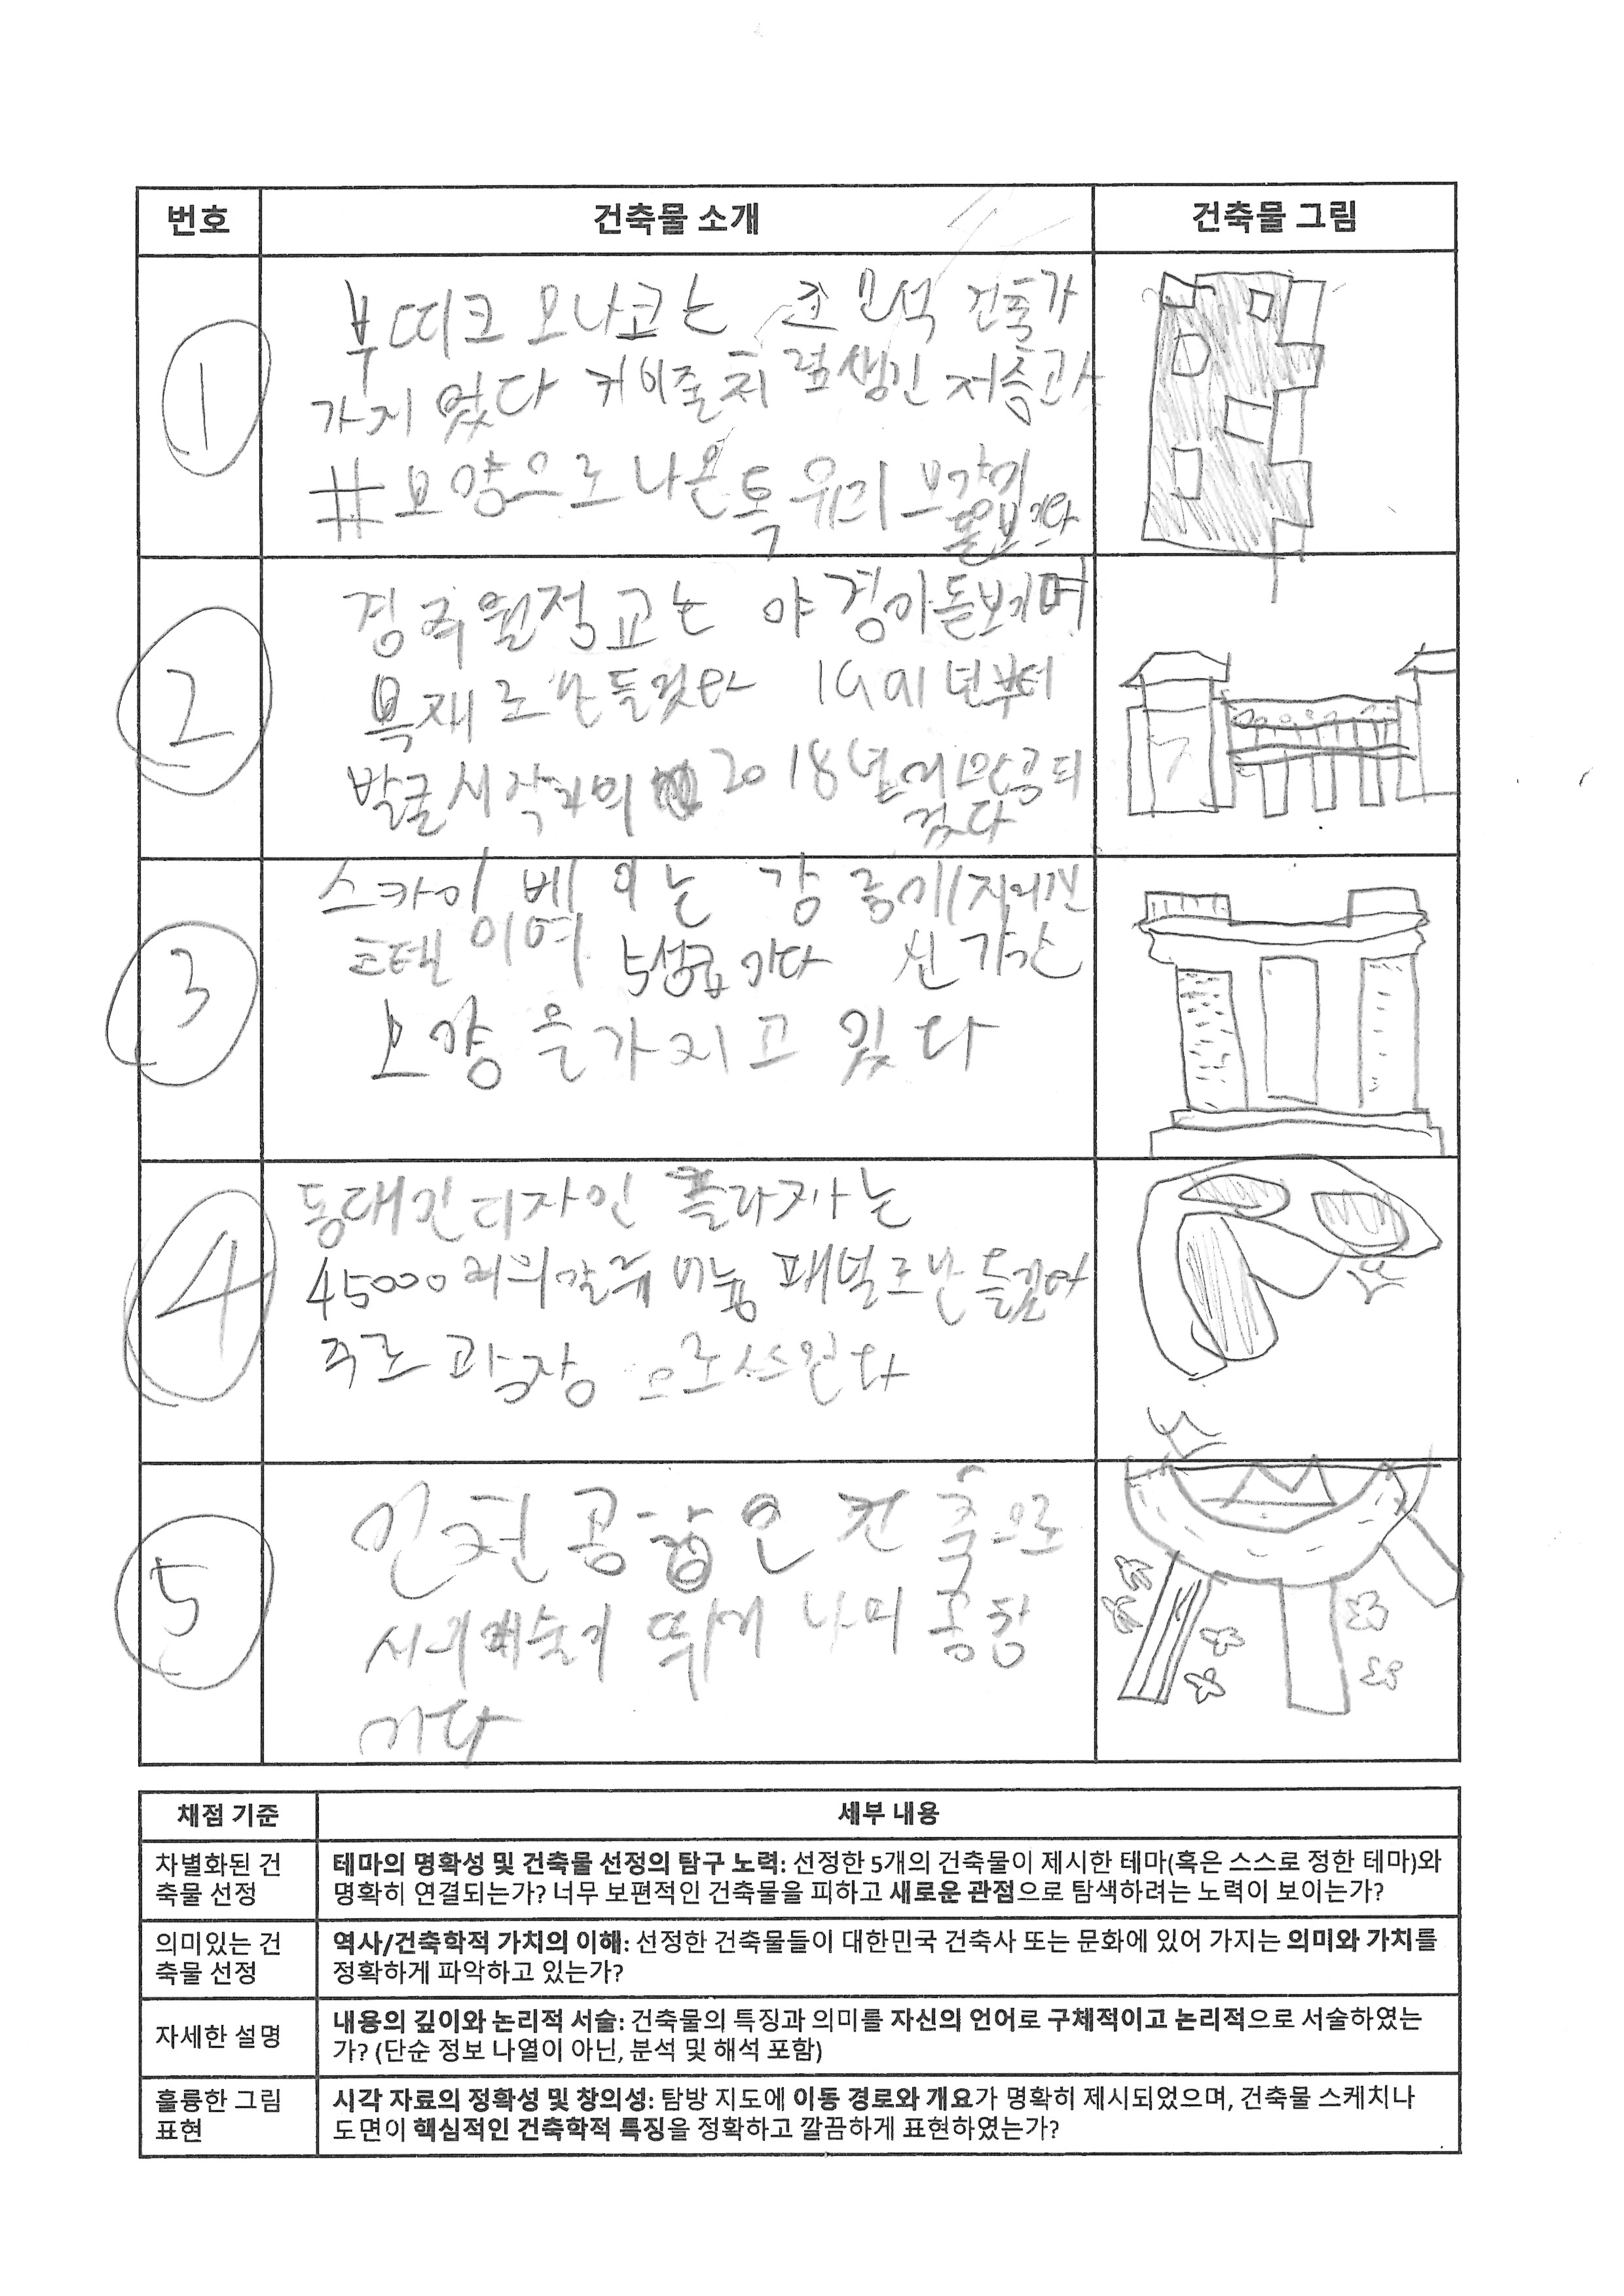 번호 건축물 소개 건축물 그림
1
부띠크 모나코는 조민석 건축가
가지었다 커비줄처럼생긴 저층과
#모양으로 나온 독 유리
2
경주월정교는 야경이돋보이며
목재로만들었다 1991년부터
발굴시작되어 2018년에완공되
었다
3
스카이베이는 강릉에지어진
호텔이며 5성급이다 신기한
모양을가지고 있다
4
동대문디자인 플라자는
45000개의알루미늄 패널로만들었다
주로 광장으로쓰인다
5
인천공항은 건축으로
공항
이다
채점 기준 세부 내용
차별화된 건 테마의 명확성 및 건축물 선정의 탐구 노력: 선정한 5개의 건축물이 제시한 테마(혹은 스스로 정한 테마)와
축물 선정 명확히 연결되는가? 너무 보편적인 건축물을 피하고 새로운 관점으로 탐색하려는 노력이 보이는가?
의미있는 건 역사/건축학적 가치의 이해: 선정한 건축물들이 대한민국 건축사 또는 문화에 있어 가지는 의미와 가치를
축물 선정 정확하게 파악하고 있는가?
자세한 설명 내용의 깊이와 논리적 서술: 건축물의 특징과 의미를 자신의 언어로 구체적이고 논리적으로 서술하였는
가? (단순 정보 나열이 아닌, 분석 및 해석 포함)
훌륭한 그림 시각 자료의 정확성 및 창의성: 탐방 지도에 이동 경로와 개요가 명확히 제시되었으며, 건축물 스케치나
표현 도면이 핵심적인 건축학적 특징을 정확하고 깔끔하게 표현하였는가?